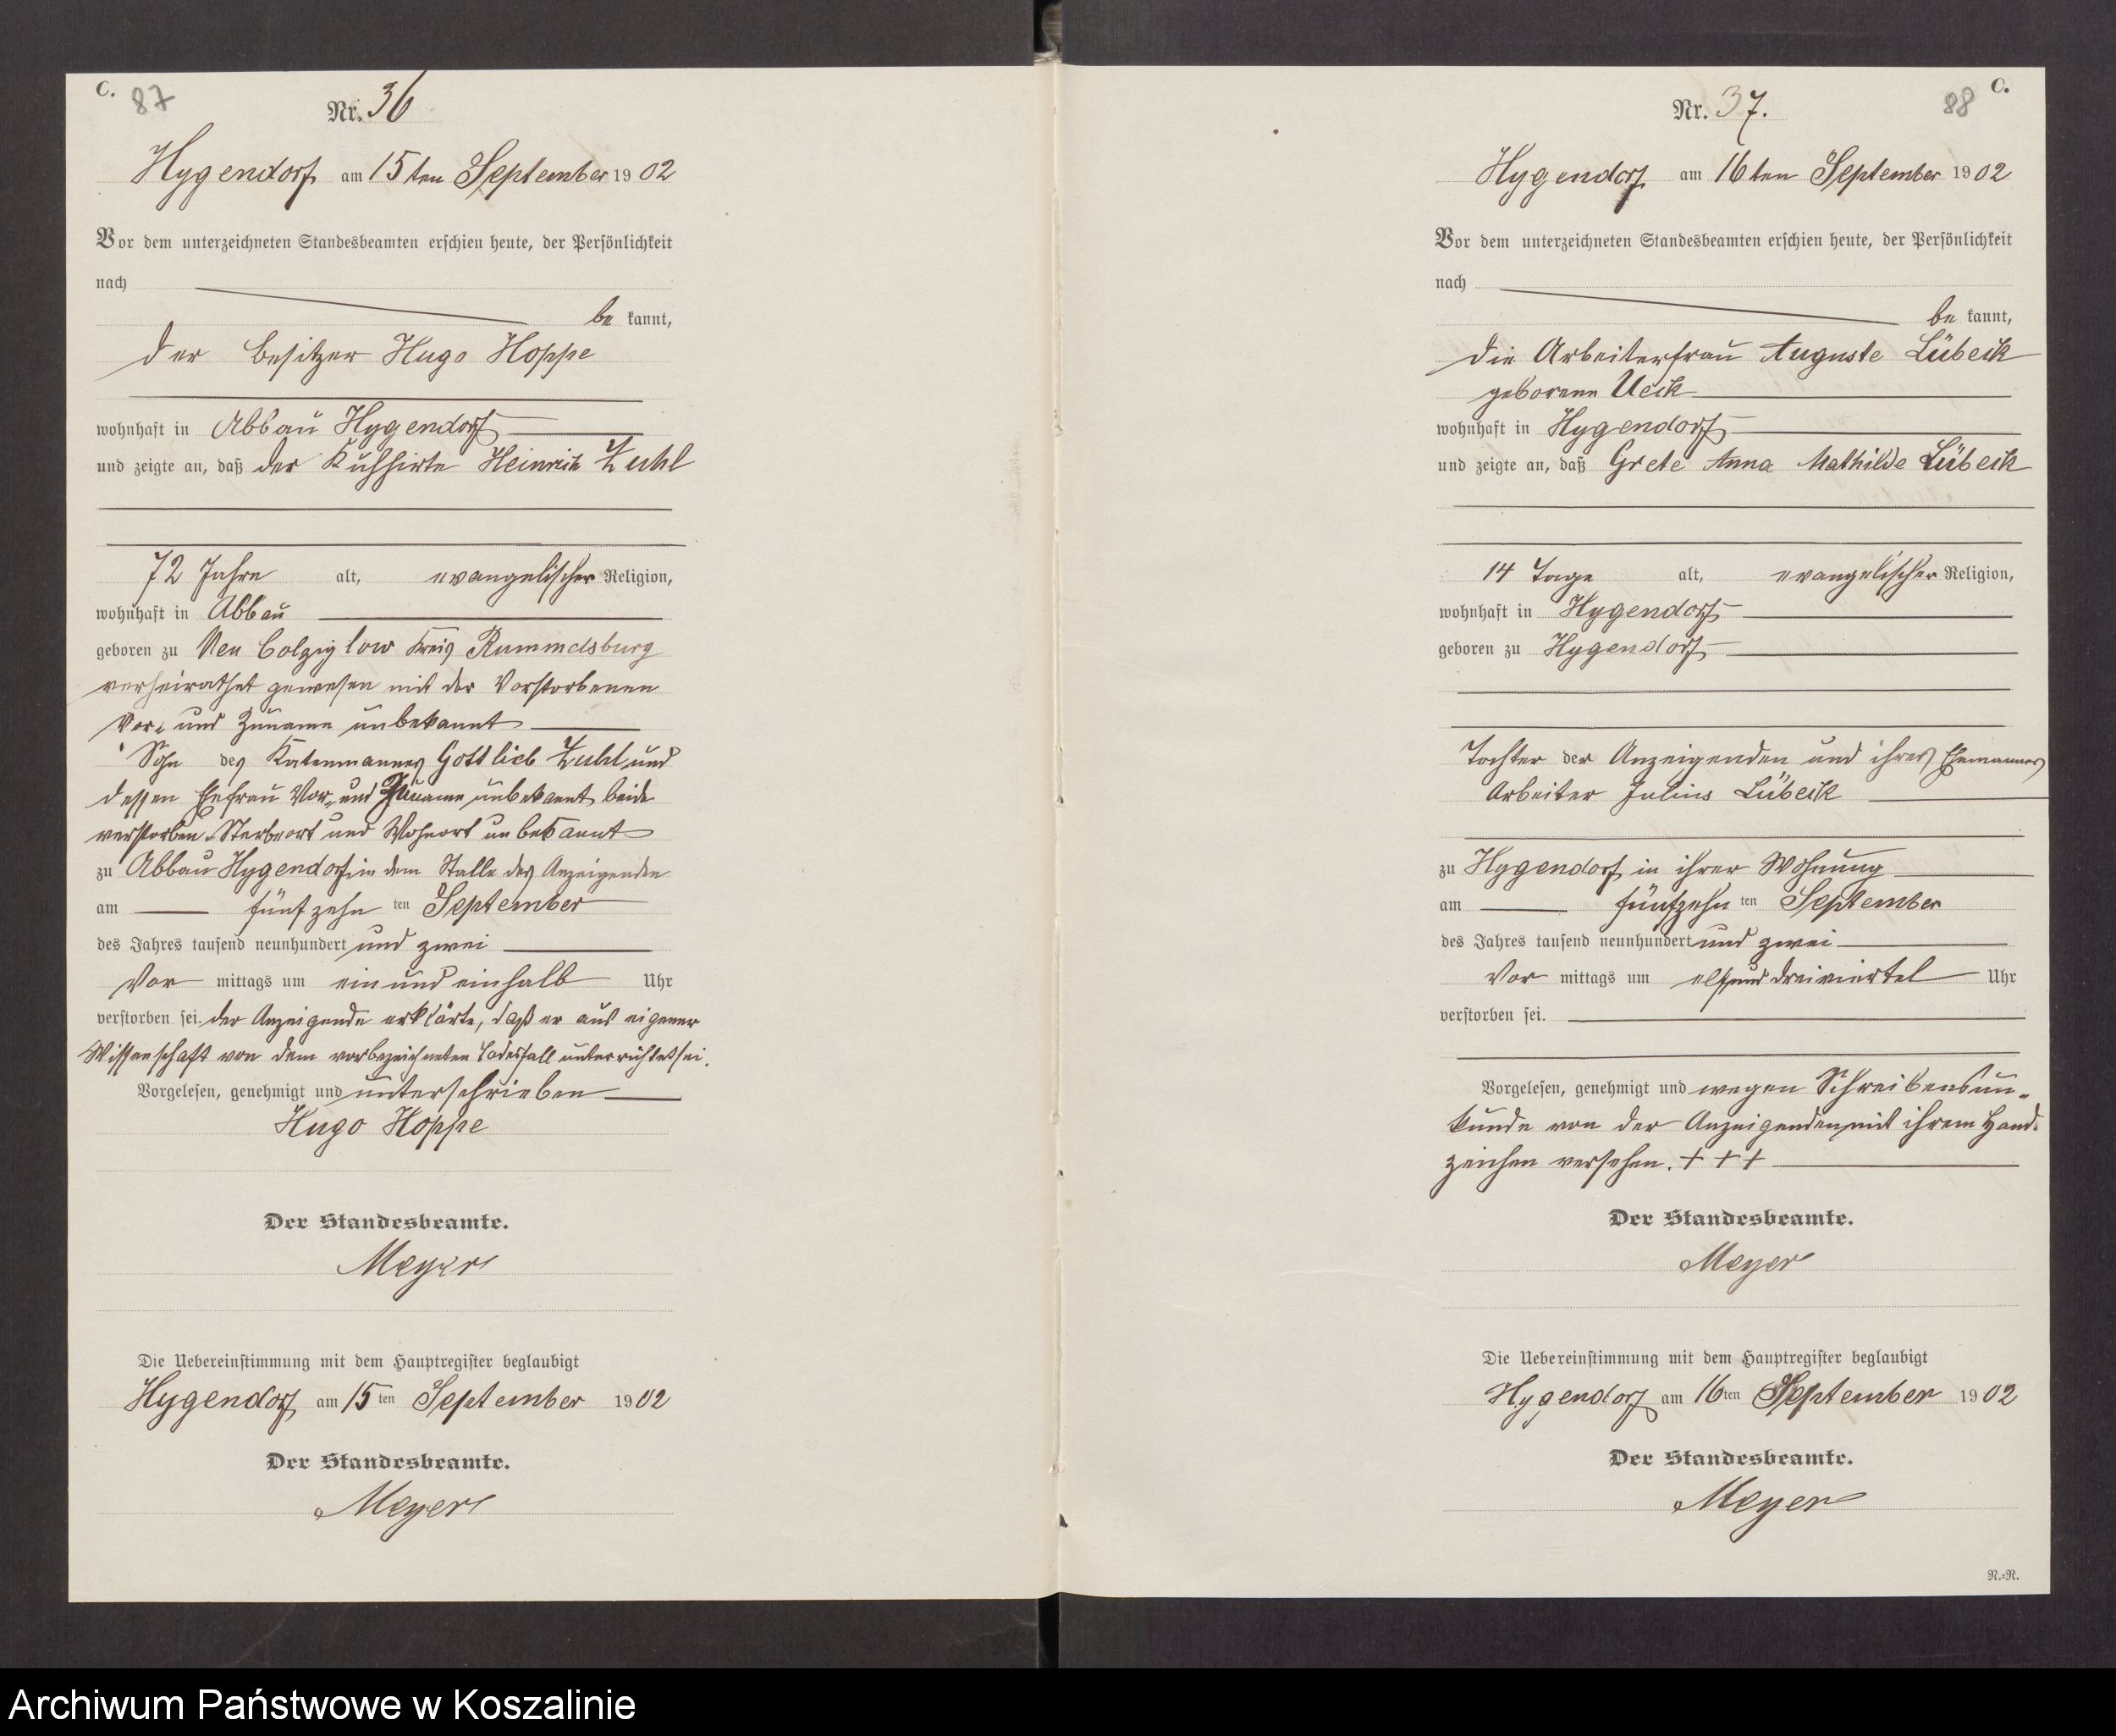 C.
87
Nr. 36
Hygendorf am 15ten September 1902
Vor dem unterzeichneten Standesbeamten erschien heute, der Persönlichkeit
nach
be kannt,
der Besitzer Hugo Hoppe
wohnhaft in Abbau Hygendorf
und zeigte an, daß der Kuhhirte Heinrich
72 Jahre alt, evangelischer Religion,
wohnhaft in Abbau
geboren zu Neu Colziglow Kreis Rummelsburg
verheirathet gewesen mit der Verstorbenen
Vor- und Zuname unbekannt
Sohn des Katenmannes Gottlieb und
dessen Ehefrau Vor- und Zuname unbekannt beide
verstorben Sterbeort und Wohnort unbekannt
zu Abbau Hygendorf in dem Stalle des Anzeigenden
am fünfzehn ten September
des Jahres tausend neunhundert und zwei
Vor mittags um ein und einhalb Uhr
verstorben sei. der Anzeigende erklärte, daß er aus eigener
Wissenschaft von dem vorbezeichneten Todesfall unterrichtet sei.
Vorgelesen, genehmigt und unterschrieben
Hugo Hoppe
Der Standesbeamte.
Meyer
Die Uebereinstimmung mit dem Hauptregister beglaubigt
Hygendorf am 15ten September 1902
Der Standesbeamte.
Meyer
C.
88
Nr. 37.
Hygendorf am 16ten September 1902
Vor dem unterzeichneten Standesbeamten erschien heute, der Persönlichkeit
nach
be kannt,
die Arbeiterfrau Auguste Lübeck
geborene Ueck
wohnhaft in Hygendorf
und zeigte an, daß Grete Anna Mathilde Lübeck
14 Tage alt, evangelischer Religion,
wohnhaft in Hygendorf
geboren zu Hygendorf
Tochter der Anzeigenden und ihres Ehemannes
Arbeiter Julius Lübeck
zu Hygendorf in ihrer Wohnung
am fünfzehn ten September
des Jahres tausend neunhundert und zwei
Vor mittags um elf und dreiviertel Uhr
verstorben sei.
Vorgelesen, genehmigt und wegen Schreibensun-
kunde von der Anzeigenden mit ihrem Hand-
zeichen versehen. + + +
Der Standesbeamte.
Meyer
Die Uebereinstimmung mit dem Hauptregister beglaubigt
Hygendorf am 16ten September 1902
Der Standesbeamte.
Meyer
N.=N.
Archiwum Państwowe w Koszalinie